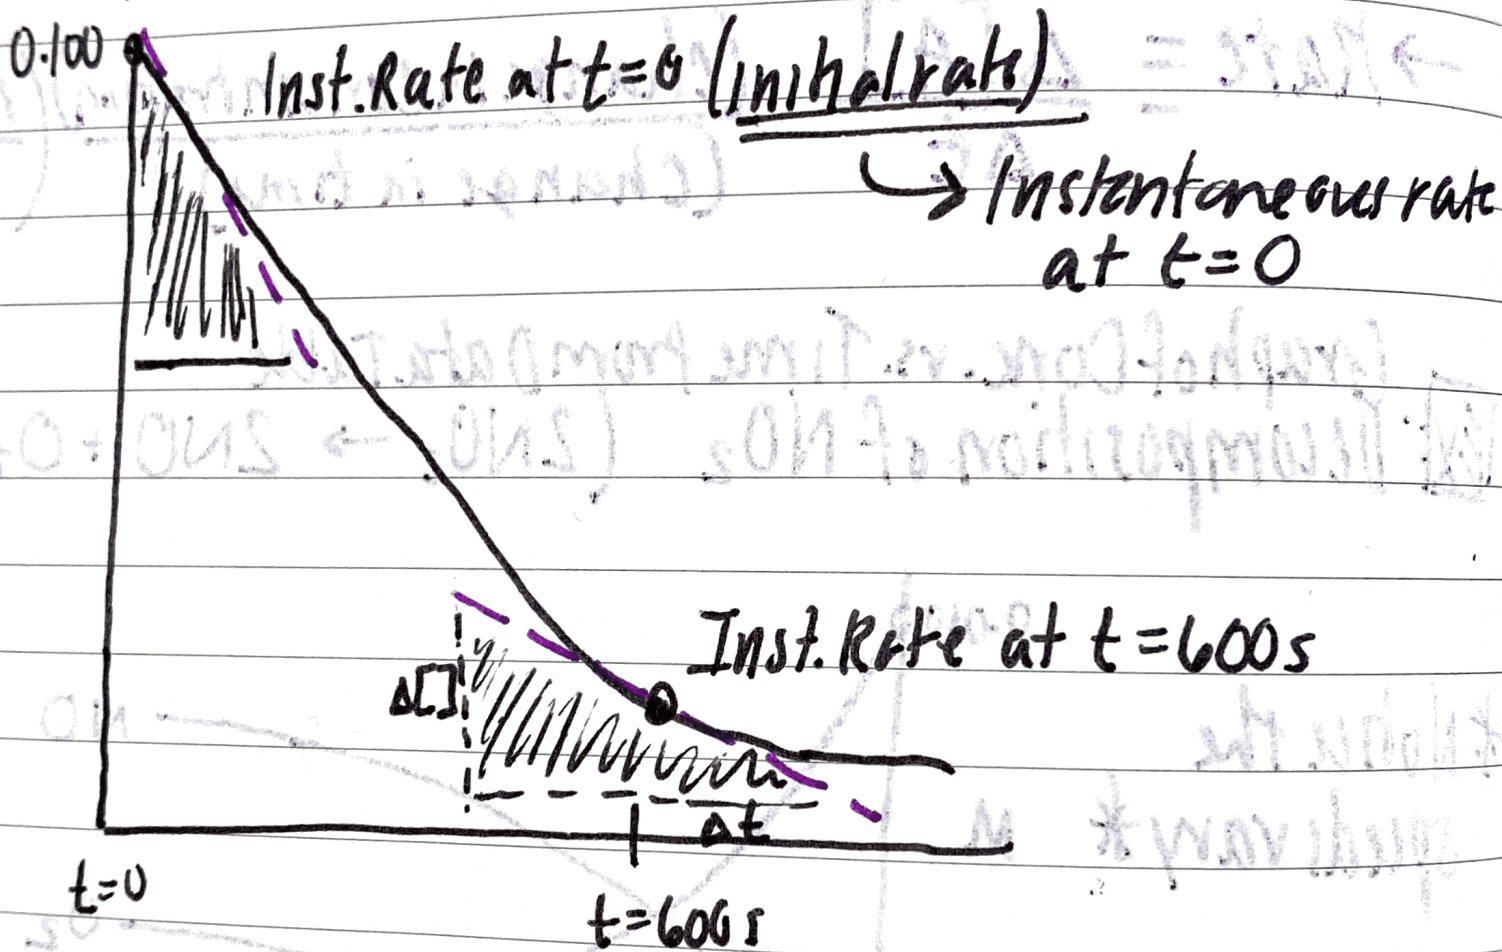 0.100
Inst. Rate at t=0 (initial rate)
→ Instantaneous rate
at t=0
Inst. Rate at t=600s
Δ[]
Δt
t=0
t=600s